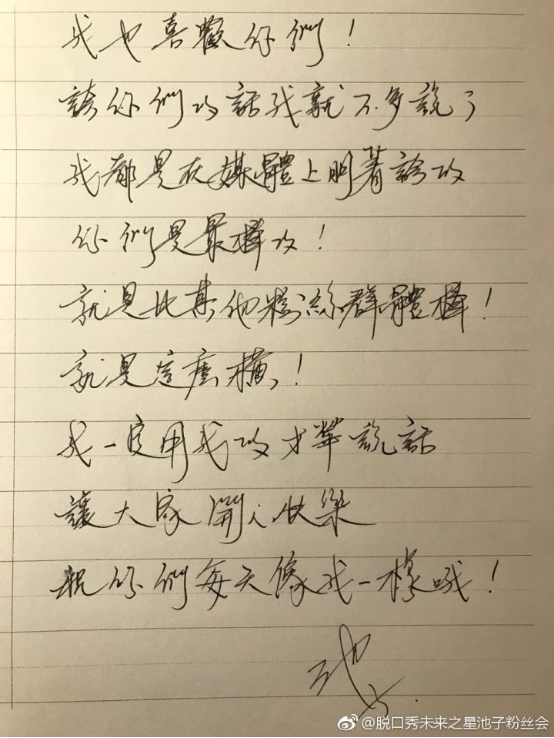 我也喜歡你們！
誇你們的話我就不多說了
我都是在媒體上明著誇的
你們是最棒的！
就是比其他粉絲群體棒！
就是這麼橫！
我一定用我的才華說話
讓大家開心快樂
祝你們每天像我一樣哦！
池子
@脱口秀未来之星池子粉丝会